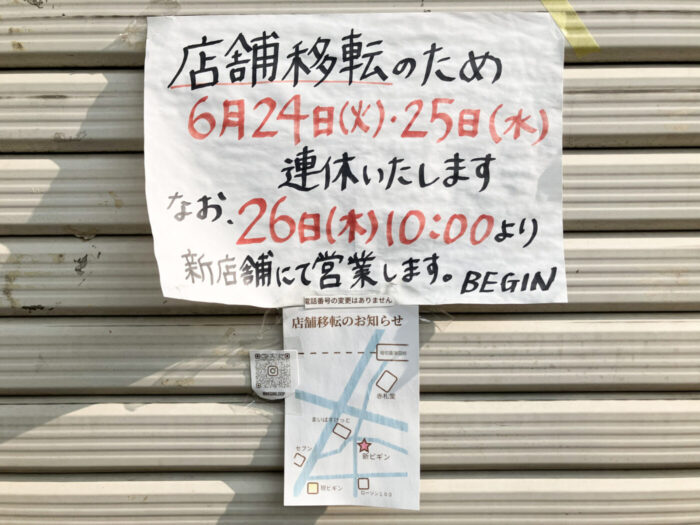 店舗移転のため
6月24日(火)・25日(水)
連休いたします
なお、26日(木)10:00より
新店舗にて営業します。BEGIN
電話番号の変更はありません
店舗移転のお知らせ
赤札堂
まいばすけっと
セブン
新ビギン
現ビギン
ローソン100